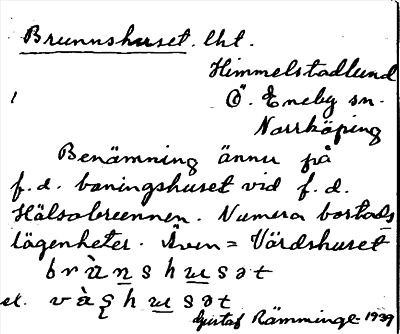 Brunnshuset. lht.
Himmelstadlund
1 Ö. Eneby sn.
Norrköping
Benämning ännu på
f. d. boningshuset vid f. d.
Hälsobrunnen. Numera bostads
lägenheter. Även = Värdshuset
brùnshusət
el. vàʂhusət
Gustaf Rämminge 1939